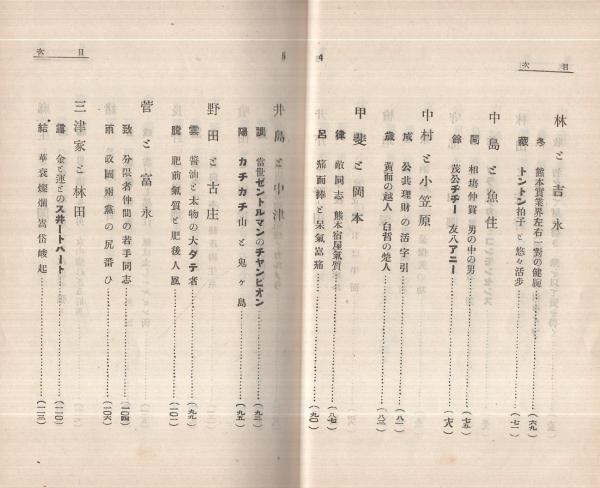 目次
林と吉永
冬 熊本實業界左右一對の健腕……(六九)
藏 トントン拍子と悠々活步……(七二)
中島と魚住
閏 相塲仲買 男の中の男……(七五)
餘 茂公チヂー 友八アニー……(七八)
中村と小笠原
成 公共理財の活字引……(八一)
歳 黃面の越人 白皙の楚人……(八三)
甲斐と岡本
律 敵同志 熊本宿屋氣質……(八七)
呂 癪面捧と呆氣嵓痛……(九〇)
4
5
目次
井島と中津
調 當世ゼントルマンのチヤンピオン……(九三)
陽 カチカチ山と鬼ヶ島……(九五)
野田と古庄
雲 醤油と太物の大ダテ者……(九九)
騰 肥前氣質と肥後人風……(一〇二)
菅と富永
致 分限者仲間の若手同志……(一〇四)
雨 政國兩黨の尻番ひ……(一〇六)
三津家と林田
露 金と運とのス井ートハート……(一一〇)
結 華衮燦爛嵩岱峻起……(一一三)